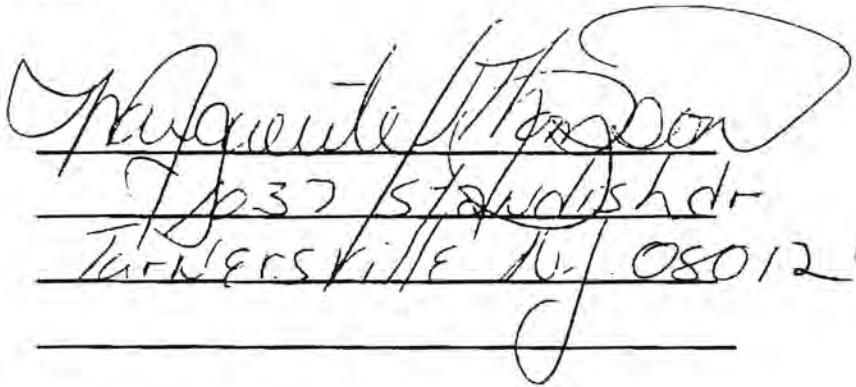 Marguerite
37 Standish dr
Turnersville NJ 08012